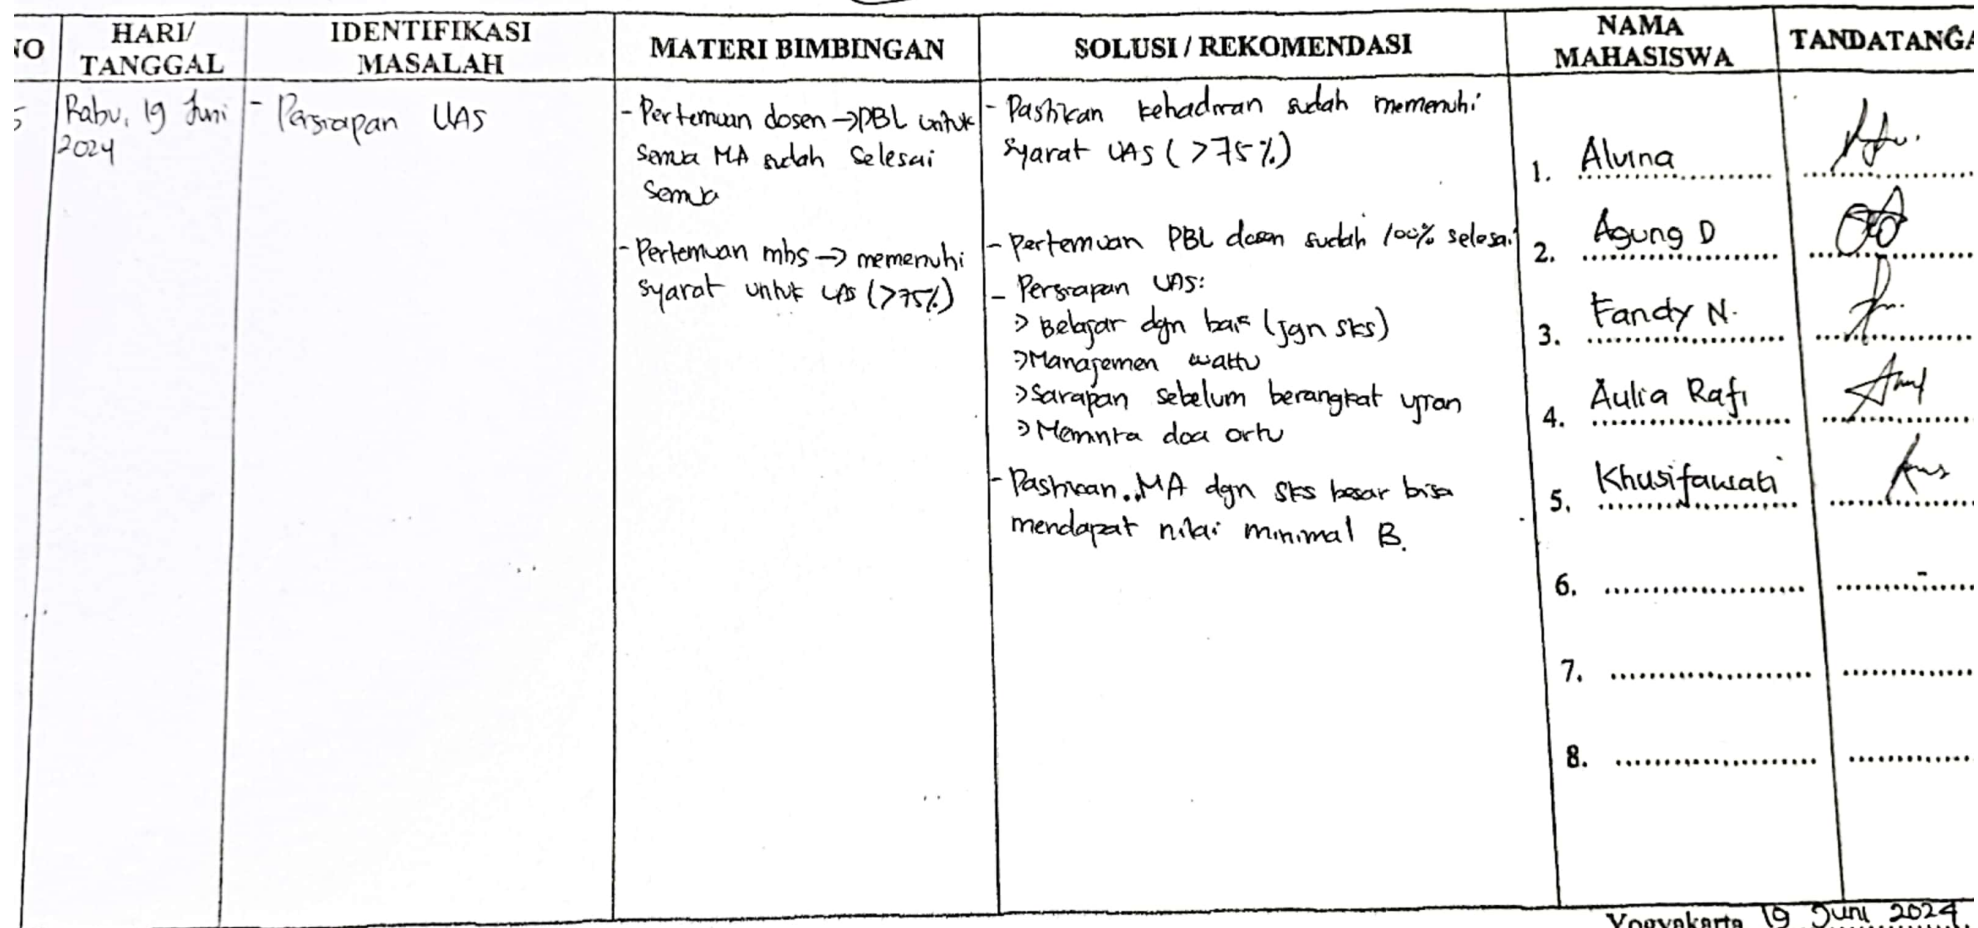 NO
HARI/
TANGGAL
IDENTIFIKASI
MASALAH
MATERI BIMBINGAN
SOLUSI / REKOMENDASI
NAMA
MAHASISWA
TANDATANGA
5
Rabu, 19 Juni
2024
- Persiapan UAS
- Pertemuan dosen → PBL untuk
semua MA sudah selesai
semua
- Pertemuan mhs → memenuhi
syarat untuk UAS (>75%)
- Pastikan kehadiran sudah memenuhi
syarat UAS (>75%)
- Pertemuan PBL dosen sudah 100% selesai
- Persiapan UAS:
> Belajar dgn baik (jgn sks)
> Manajemen waktu
> Sarapan sebelum berangkat ujian
> Meminta doa ortu
- Pastikan MA dgn sks besar bisa
mendapat nilai minimal B.
1. Alvina
2. Agung D
3. Fandy N.
4. Aulia Rafi
5. Khusifawati
6.
7.
8.
Yogyakarta 19 Juni 2024